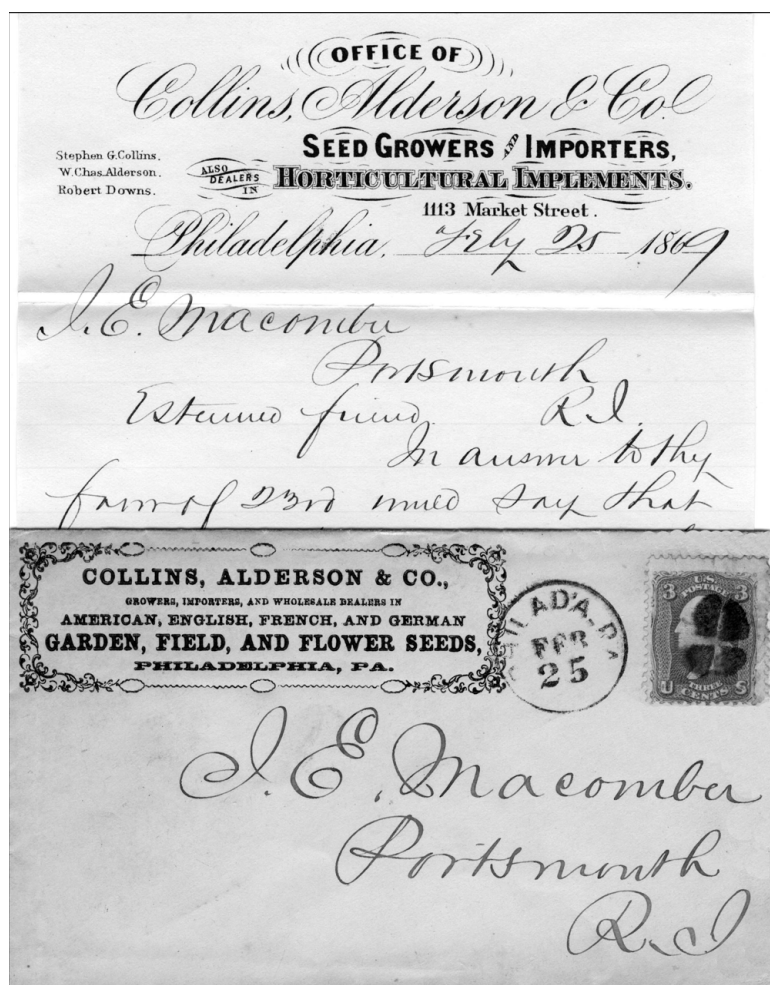 OFFICE OF
Collins, Alderson & Co.
SEED GROWERS AND IMPORTERS,
Stephen G. Collins.
W. Chas. Alderson.
Robert Downs.
ALSO DEALERS IN
HORTICULTURAL IMPLEMENTS.
1113 Market Street.
Philadelphia, Feby 25 1869
I. E. Macomber
Portsmouth
Esteemed friend R I.
In answer to thy
favor of 23rd would say that
COLLINS, ALDERSON & CO.,
GROWERS, IMPORTERS, AND WHOLESALE DEALERS IN
AMERICAN, ENGLISH, FRENCH, AND GERMAN
GARDEN, FIELD, AND FLOWER SEEDS,
PHILADELPHIA, PA.
PHILAD'A. PA
FEB
25
3 U.S. 3
POSTAGE
THREE
U CENTS S
I. E. Macomber
Portsmouth
R. I